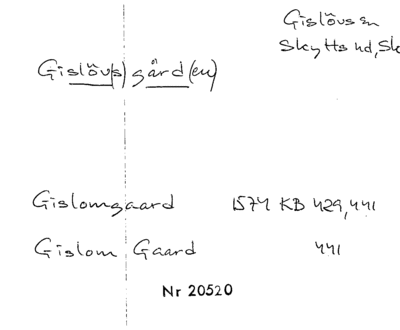 Gislövs sn
Skytts hd, Sk
Gislöv(s)gård(en)
Gislomgaard 1574 KB 429, 441
Gislom Gaard 441
Nr 20520